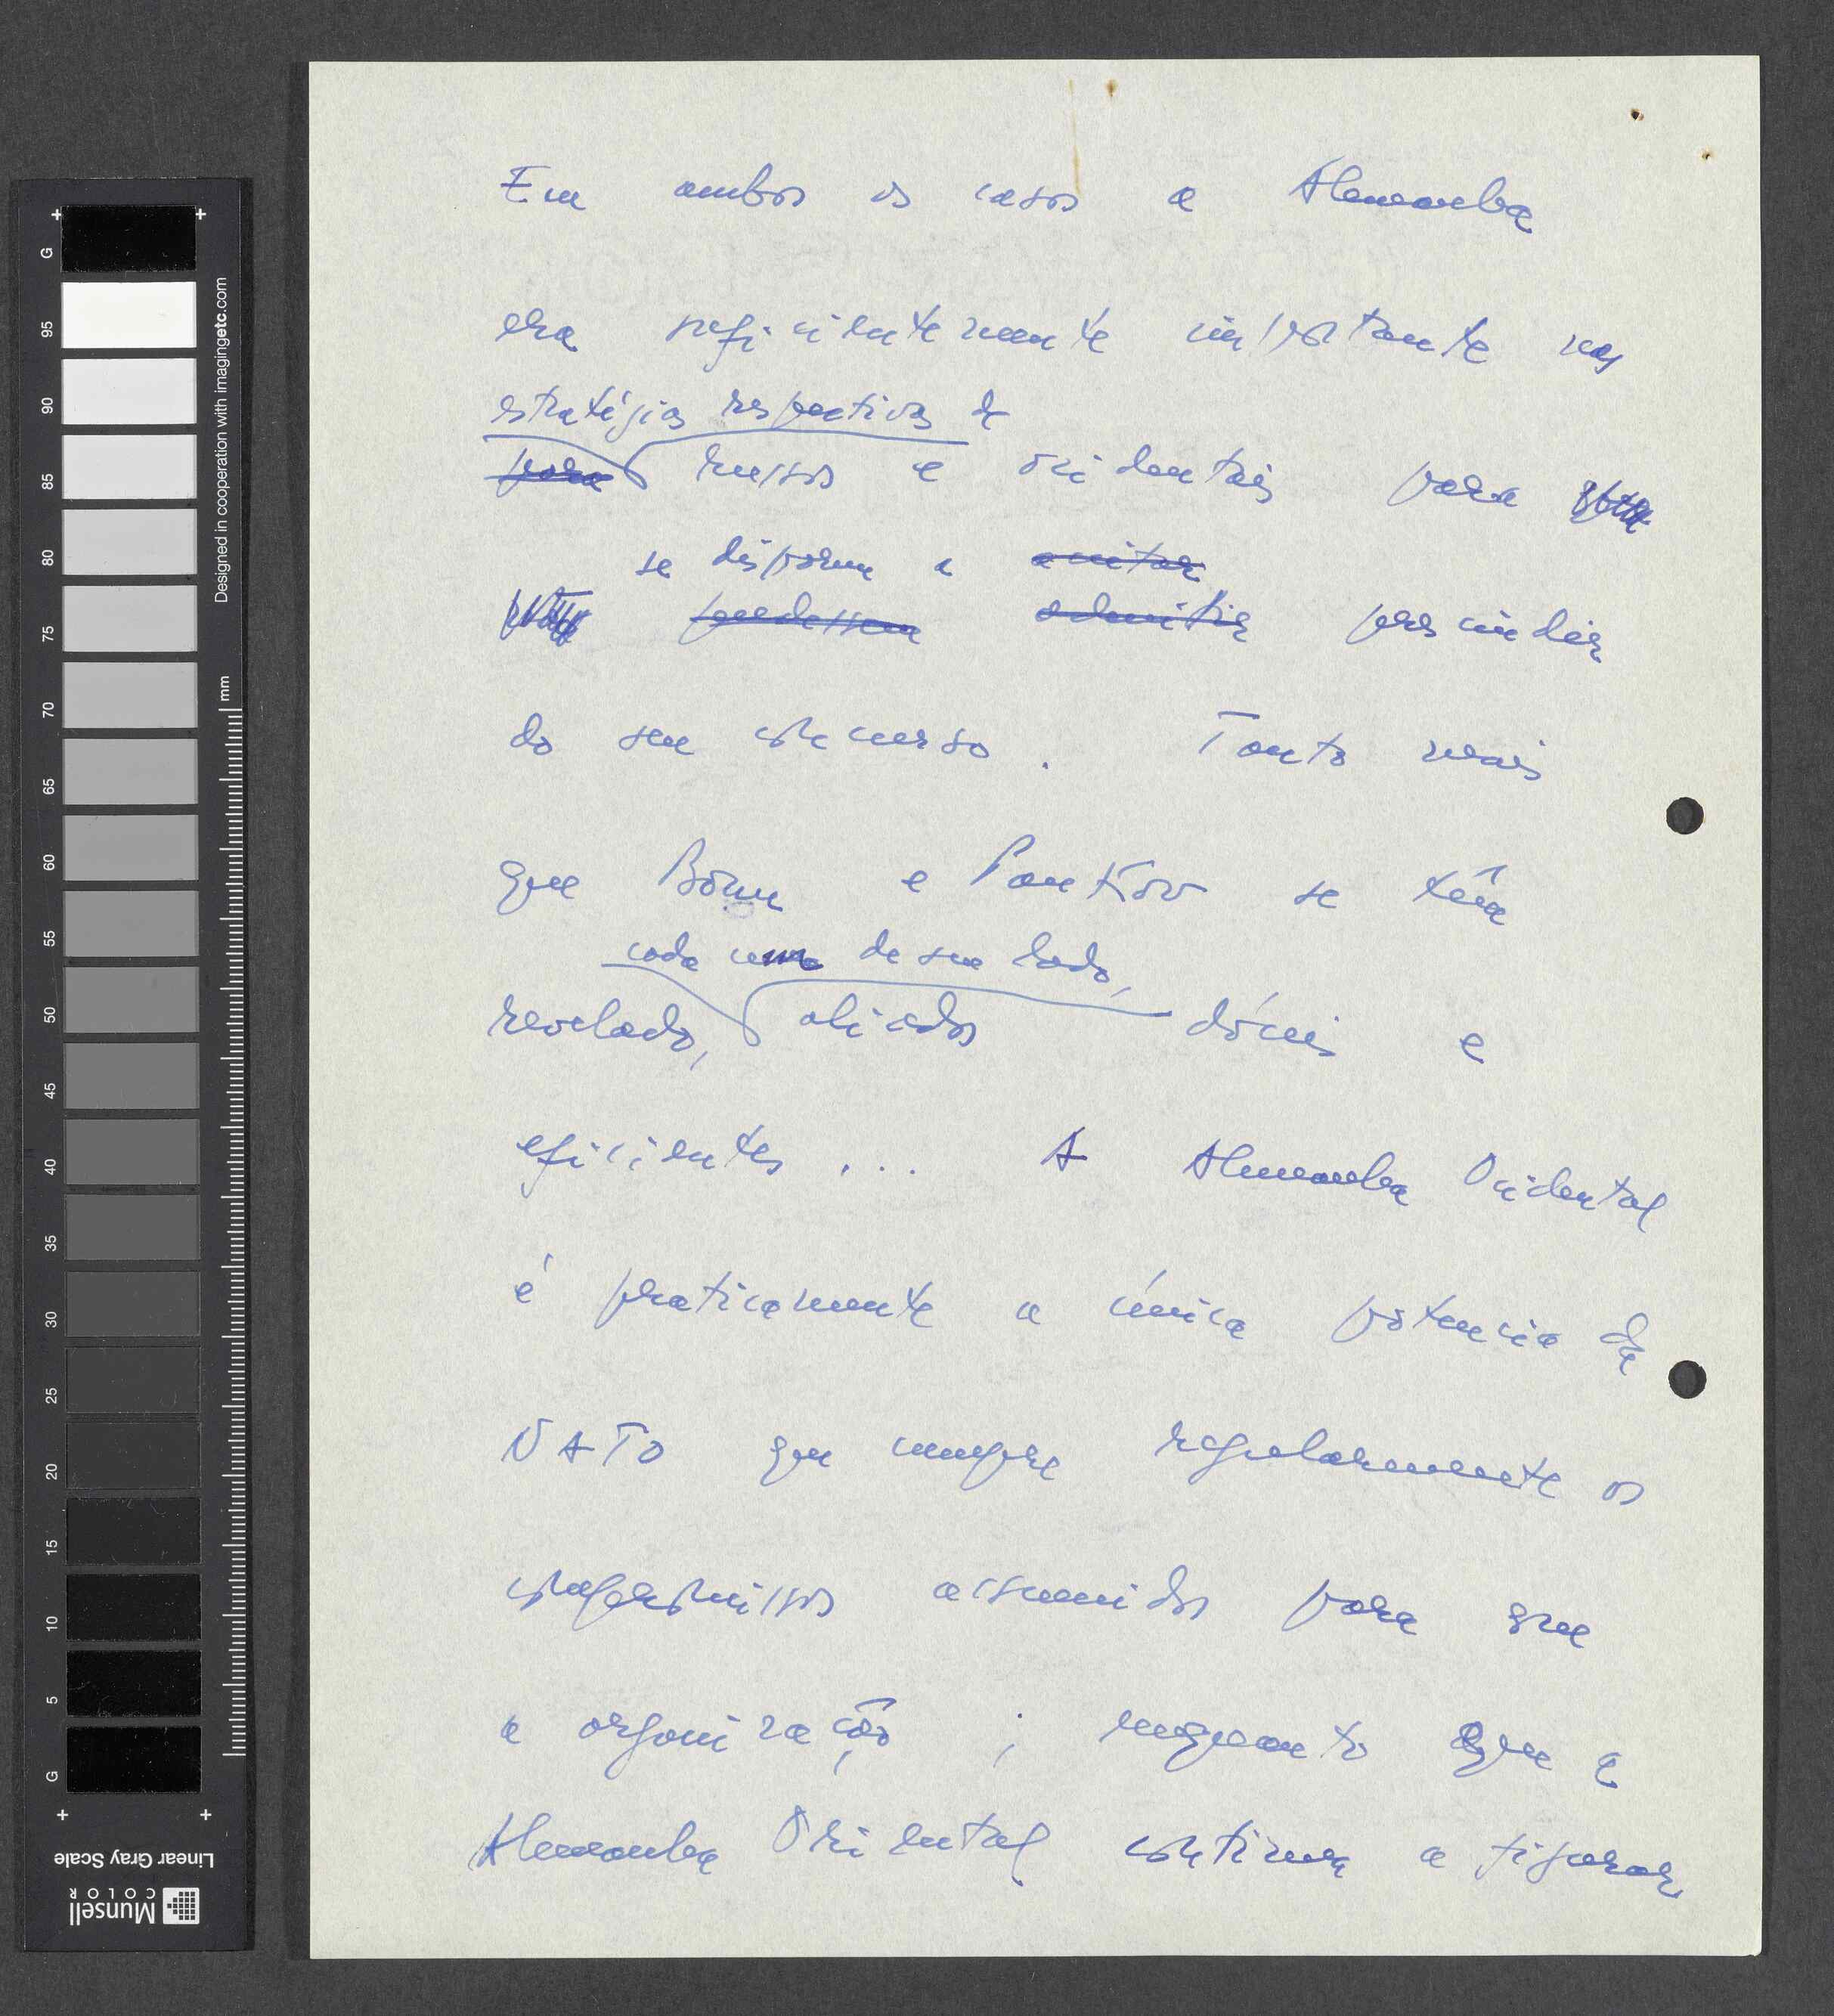 Em ambos os casos a Alemanha
era suficientemente importante nas
estratégias respectivas de
para russos e ocidentais para
se disporem a aceitar
pudessem admitir prescindir
do seu concurso. Tanto mais
que Bonn e Pankow se têm
cada um de seu lado,
revelado, aliados dóceis e
eficientes... A Alemanha Ocidental
é praticamente a única potencia da
NATO que cumpre regularmente os
compromissos assumidos para que
a organização ; enquanto que a
Alemanha Oriental continua a figurar
G
95
90
85
80
75
70
65
60
55
50
45
40
35
30
25
20
15
10
5
G
mm
Designed in cooperation with imagingetc.com
Linear Gray Scale
Munsell
COLOR